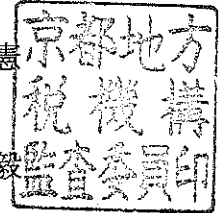 京都地方
憲
税機構
毅
監査委員印